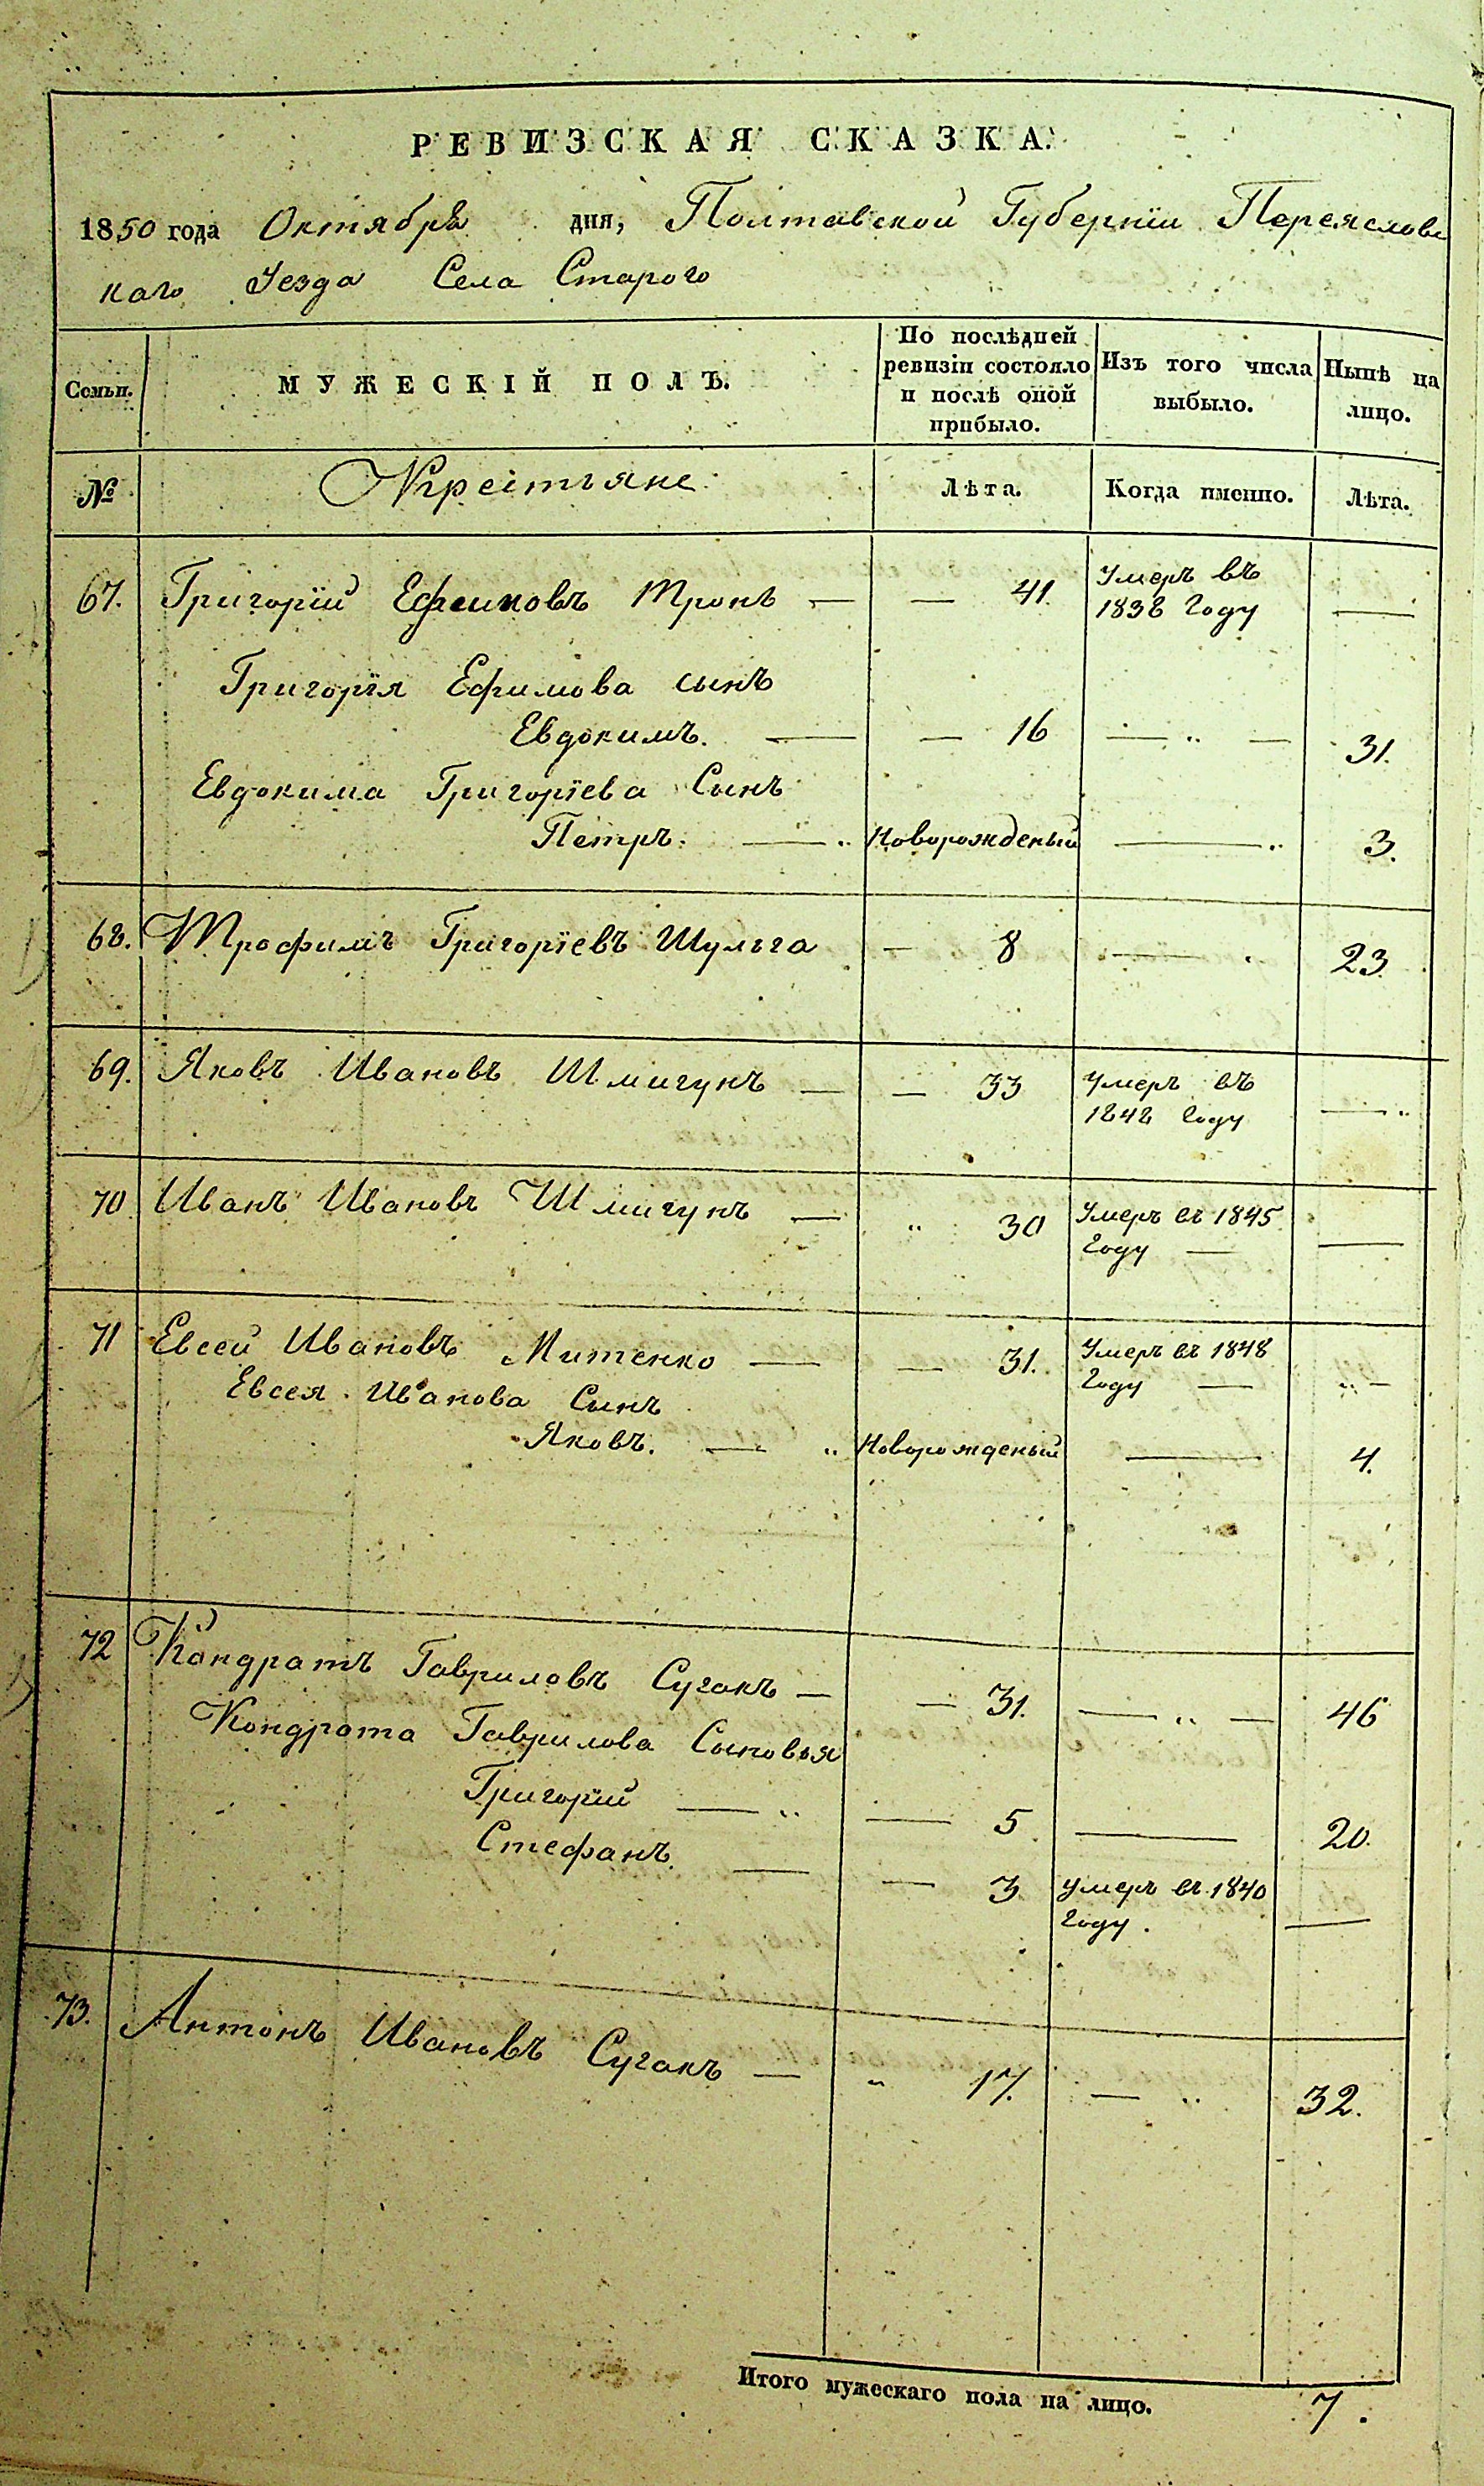 РЕВИЗСКАЯ СКАЗКА.
1850 года Октября дня, Полтавской Губернїи Переяславс
каго Уезда Села Старого
Семьи.
МУЖЕСКІЙ ПОЛЪ.
По послѣдней
ревизіи состояло
и послѣ оной
прибыло.
Изъ того числа
выбыло.
Нынѣ на
лицо.
№
Крестьяне
Лѣта.
Когда именно.
Лѣта.
67. Григорїй Ефимовъ Тронь — — 41. Умеръ въ
1838 Году —
Григорїя Ефимова сынъ
Евдокимъ. — — 16 — „ — 31.
Евдокима Григорїева Сынъ
Петръ. — „ Новорожденый — „ 3.
68. Трофимъ Григорїевъ Шульга — 8 — 23.
69. Яковъ Ивановъ Шмигунъ — — 33 Умеръ въ
1848 Году — „
70 Иванъ Ивановъ Шмигунъ — „ 30 Умеръ въ 1845
Году — —
71 Евсей Ивановъ Митенко — — 31. Умеръ въ 1848
Году — „ —
Евсея Иванова Сынъ
Яковъ. — „ Новорожденый — 4.
72 Кондратъ Гавриловъ Сугакъ — — 31. — „ — 46
Кондрата Гаврилова Сыновья
Григорїй — „ — 5 — 20.
Стефанъ. — — 3 Умеръ въ 1840
Году. —
73. Антонъ Ивановъ Сугакъ — „ 17. — „ 32.
Итого мужескаго пола на лицо. 7.